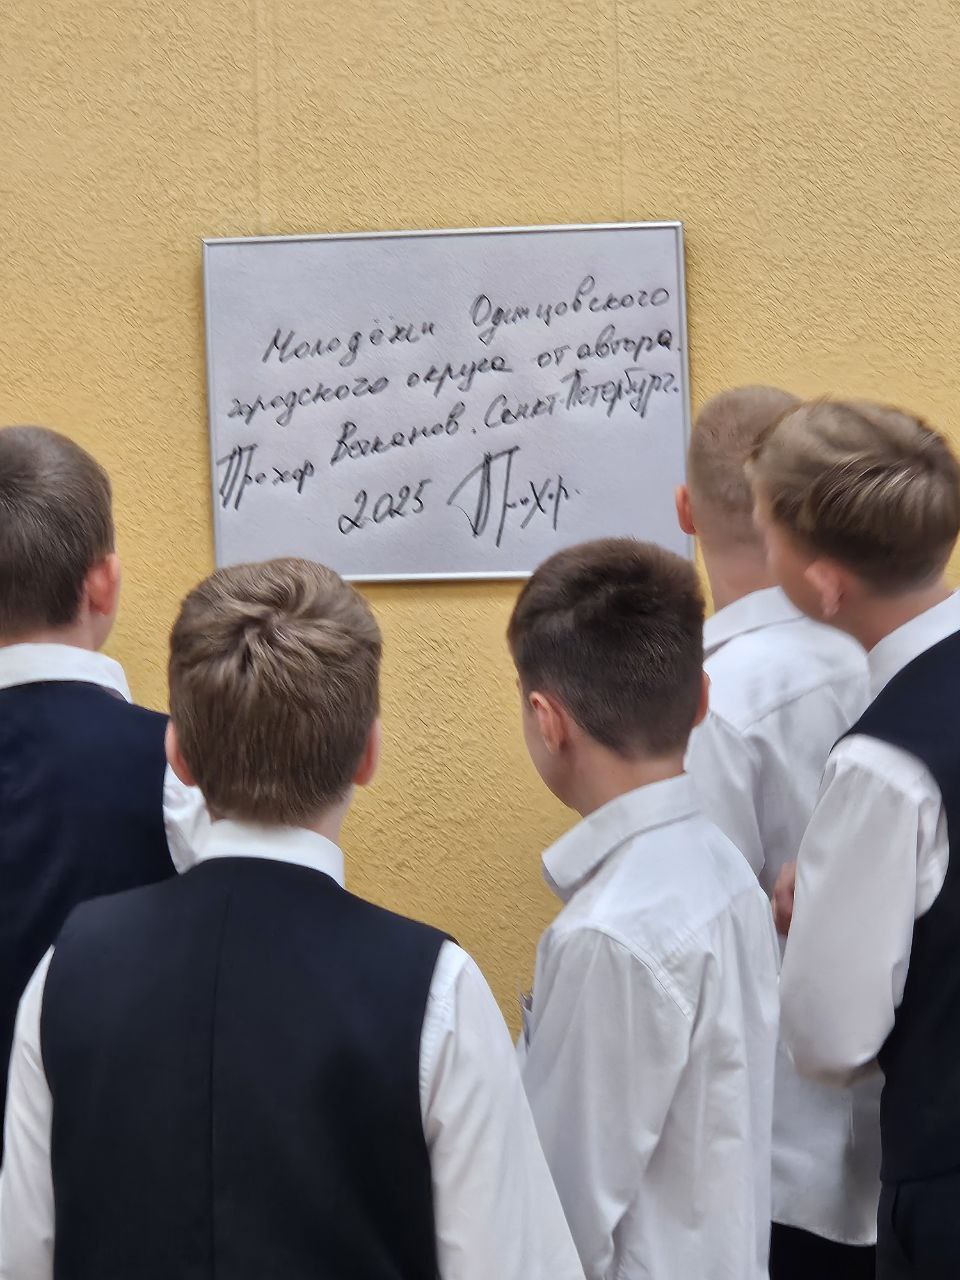 Молодёжи Одинцовского
городского округа от автора.
Прохор Санкт-Петербург.
2025 Прохор.